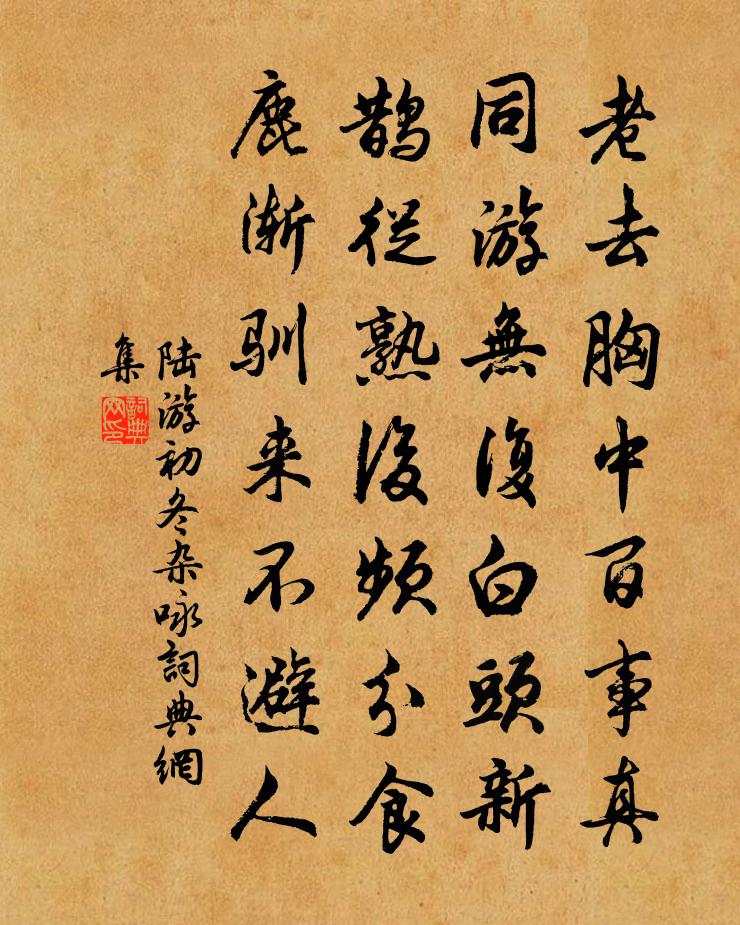 老去胸中百事真
同游無復白頭新
鵲從熟後頻分食
鹿漸馴来不避人
陆游初冬杂咏詞典網
集
詞典
网印